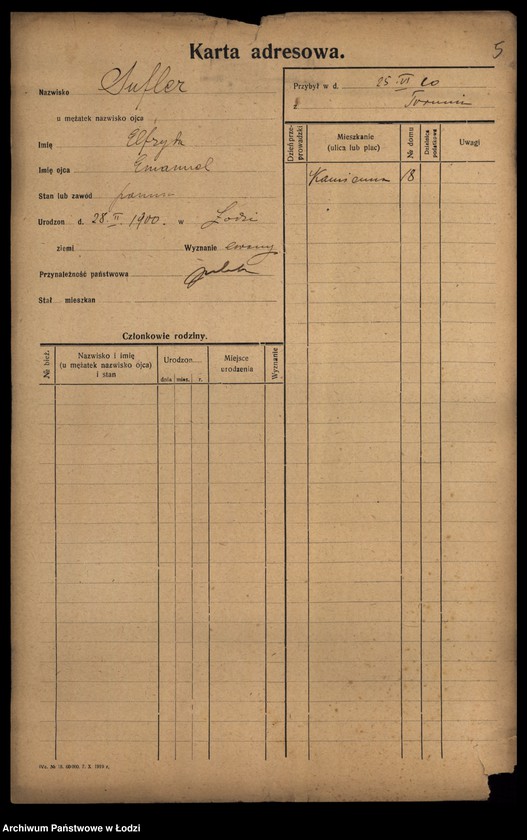 5
Karta adresowa.
Nazwisko Sufler
u mężatek nazwisko ojca
Imię Elfryda
Imię ojca Emanuel
Stan lub zawód panna
Urodzon d. 28 II 1900. w Łodzi
ziemi Wyznanie ewang
Przynależność państwowa
Stał mieszkan
Przybył w d. 25 VI 20
z Torunia
Dzień przeprowadzki
Mieszkanie (ulica lub plac)
№ domu
Dzielnica podatkowa
Uwagi
Kamienna 18
Członkowie rodziny.
№ bież.
Nazwisko i imię
(u mężatek nazwisko ojca)
i stan
Urodzon
dnia mies. r.
Miejsce
urodzenia
Wyznanie
Archiwum Państwowe w Łodzi